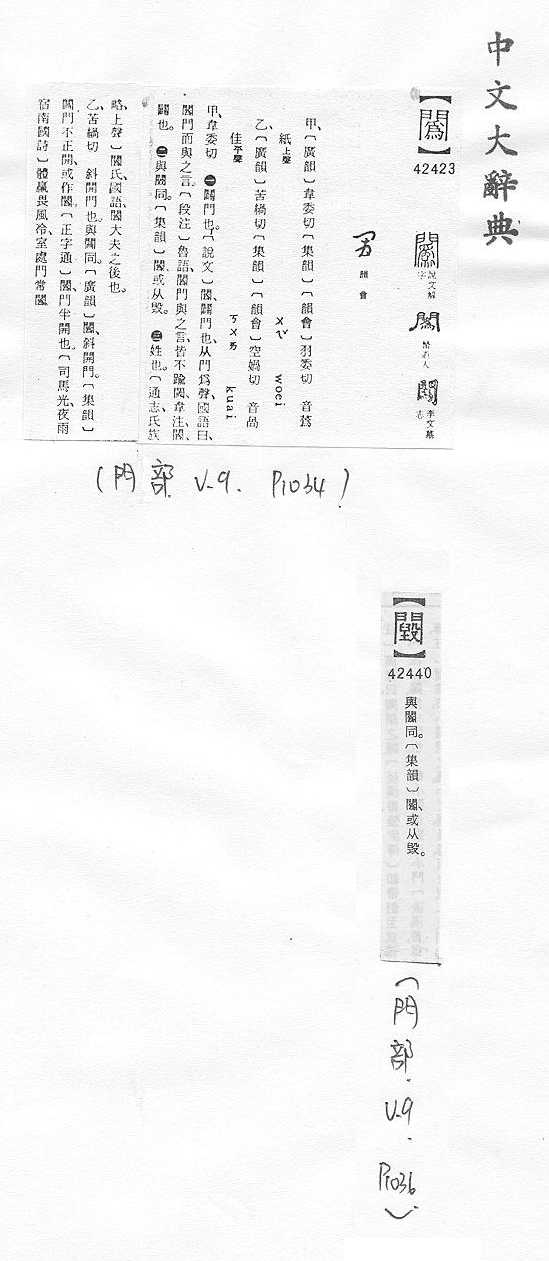 中文大辭典
【闒】
42423
說文解字
李文墓志
韻會
甲、〔廣韻〕韋委切〔集韻〕〔韻會〕羽委切 音蔿
紙上聲
ㄨㄟˇ woei
乙、〔廣韻〕苦緺切〔集韻〕〔韻會〕空媧切 音咼
佳平聲
ㄎㄨㄞ kuai
甲、韋委切 ㊀闢門也。〔說文〕闠、闢門也、从門爲聲、國語曰、
闠門而與之言。〔段注〕魯語、闠門與之言、皆不踰閾、韋注、闠、
闢也。㊁與闠同。〔集韻〕闠、或从毀。 ㊂姓也。〔通志、氏族
略、上聲〕闠氏、國語、闠大夫之後也。
乙、苦緺切 斜開門也。與闠同。〔廣韻〕闠、斜開門。〔集韻〕
闠、門不正開、或作闠。〔正字通〕闠、門半開也。〔司馬光、夜雨
宿南園詩〕體羸畏風冷、室處門常闠。
(門部 V.9. P1034)
42440
與闠同。〔集韻〕闠、或从毀。
(門部. V.9. P1036)